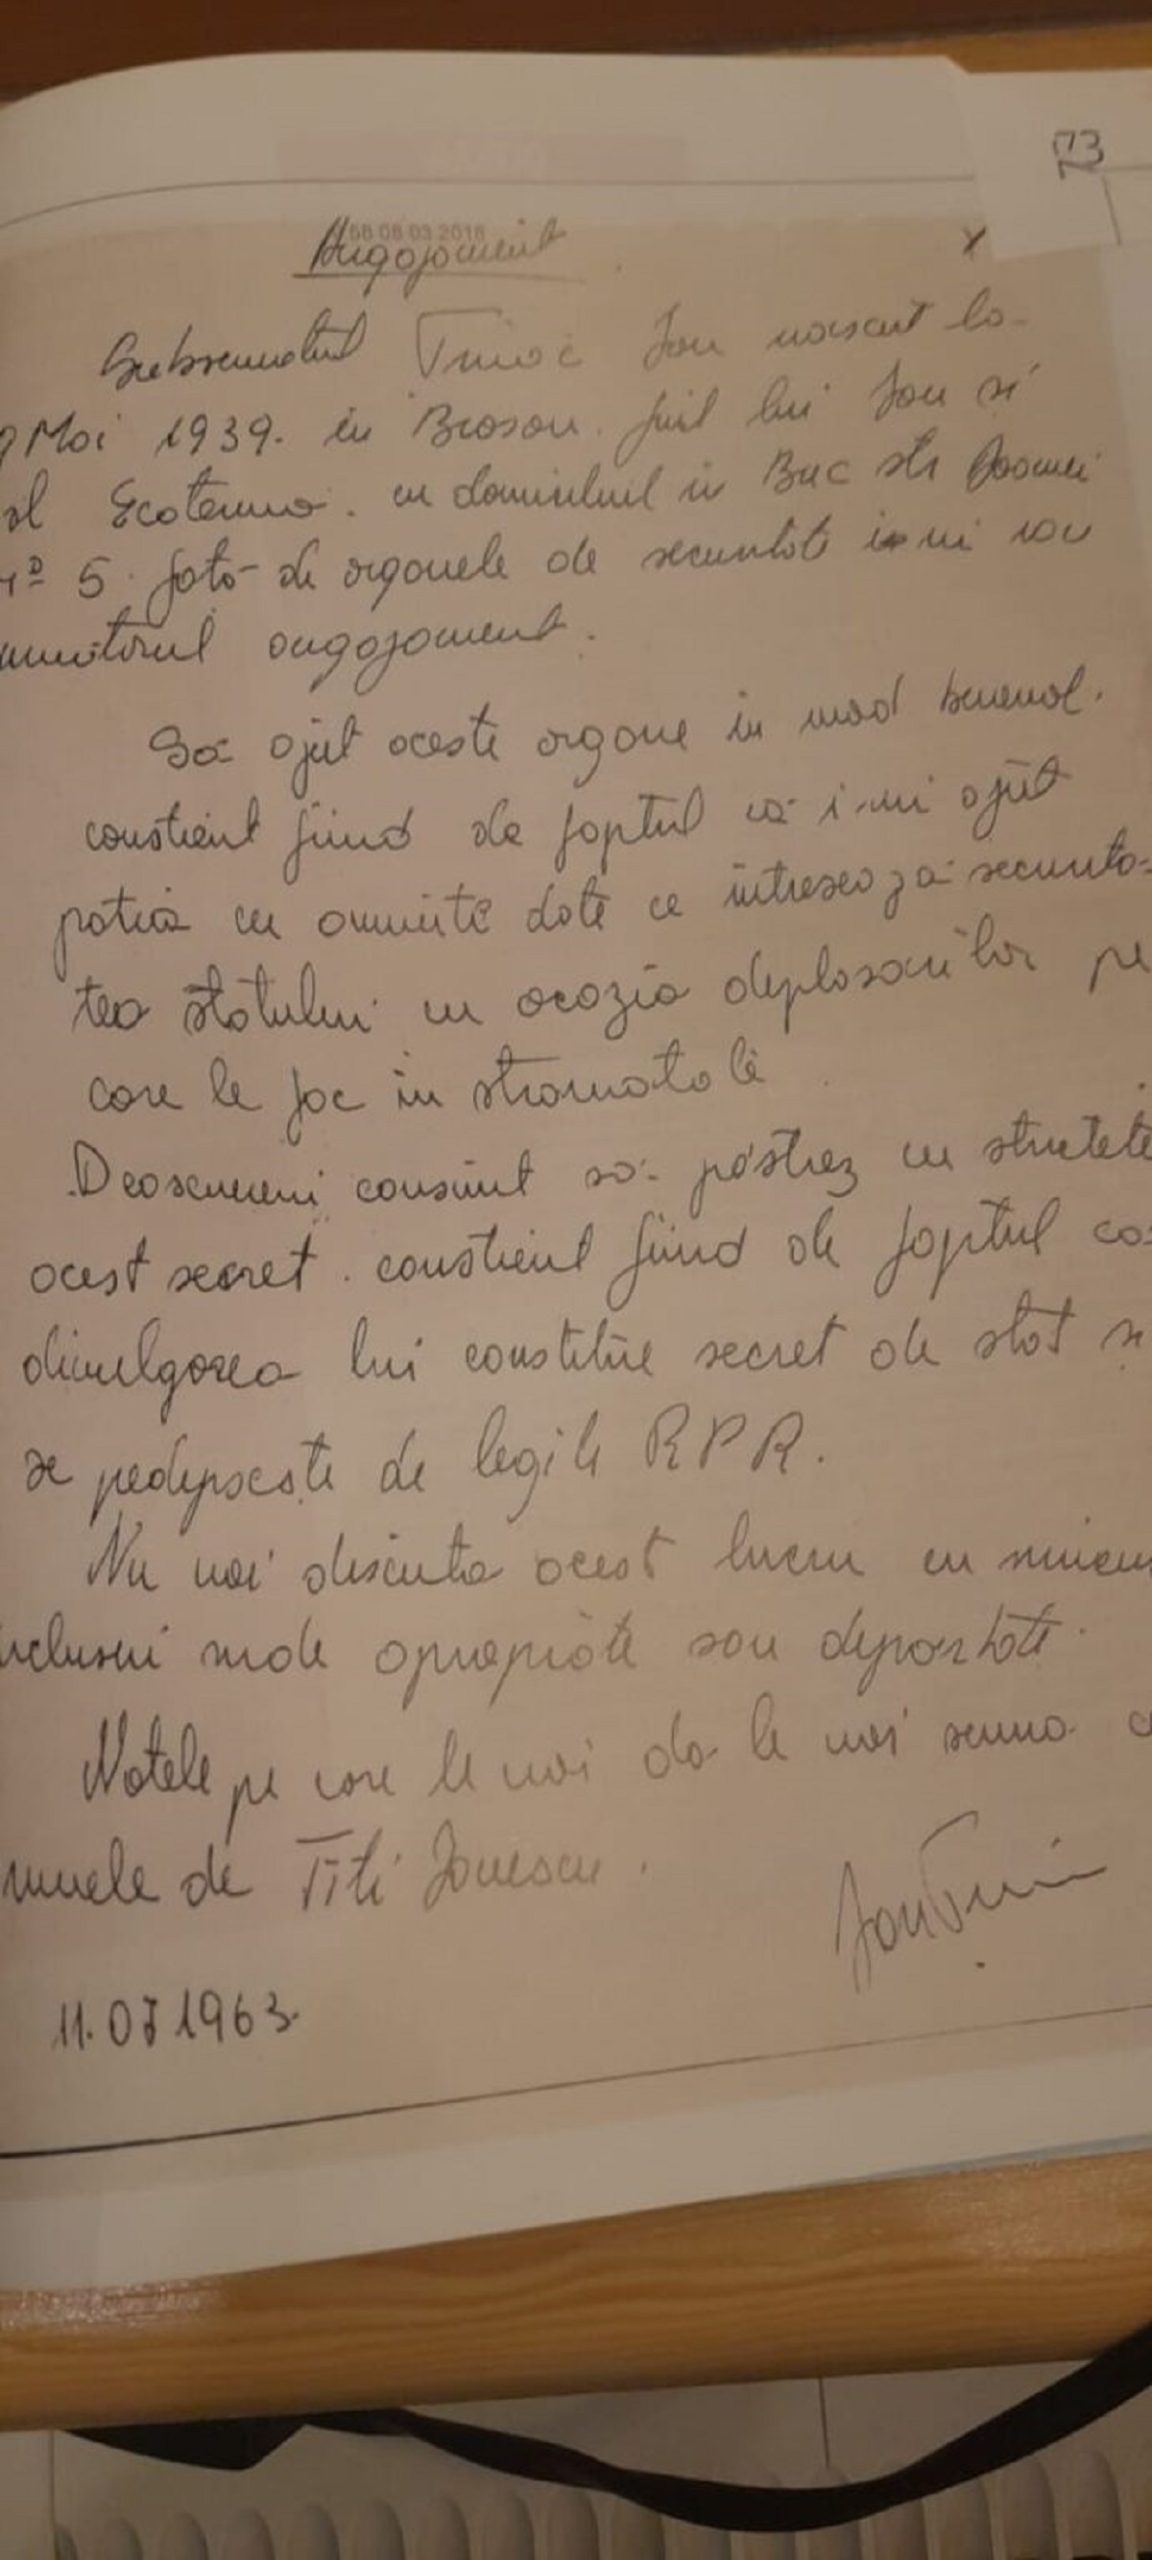 73
58 08.03.2016
Angajament
x
Subsemnatul Ţiriac Ion născut la
9 Mai 1939. în Brasov. fiul lui Ion si
al Ecaterina. cu domiciliul în Buc str
nº 5. fată de organele de securitate îmi iau
următorul angajament.
Să ajut aceste organe în mod benevol.
constient fiind de faptul că î-mi ajut
patria cu anumite date ce intresează securita-
tea statului cu ocazia deplasarilor pe
care le fac in strainatate
Deasemeni consimt să păstrez cu strictete
acest secret. constient fiind de faptul că
divulgarea lui constitue secret de stat si
se pedepseste de legile RPR.
Nu voi discuta acest lucru cu nimeni
inclusiv rude apropiate sau depărtate.
Notele pe care le voi da le voi semna cu
numele de Titi Ionescu.
11.07 1963.